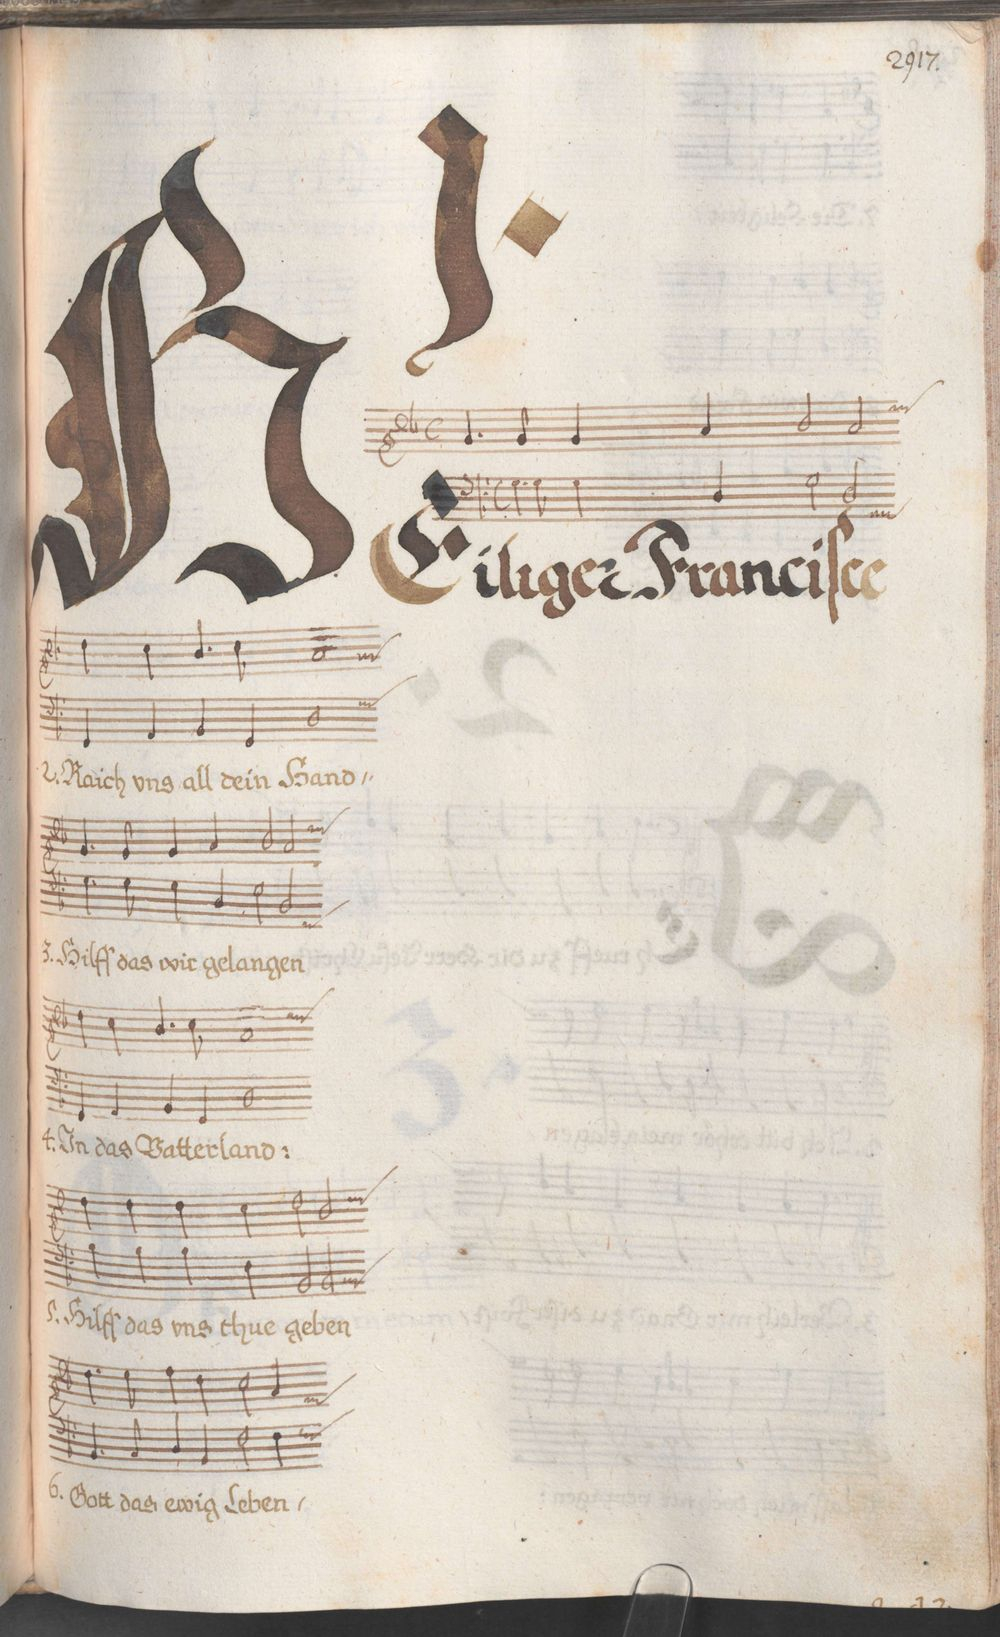 2917.
1.
HEiliger Francisce
2. Raich vns all dein Hand //
3. Hilff das wir gelangen
4. In das Vatterland:
5. Hilff das vns thue geben
6. Gott das ewig Leben /